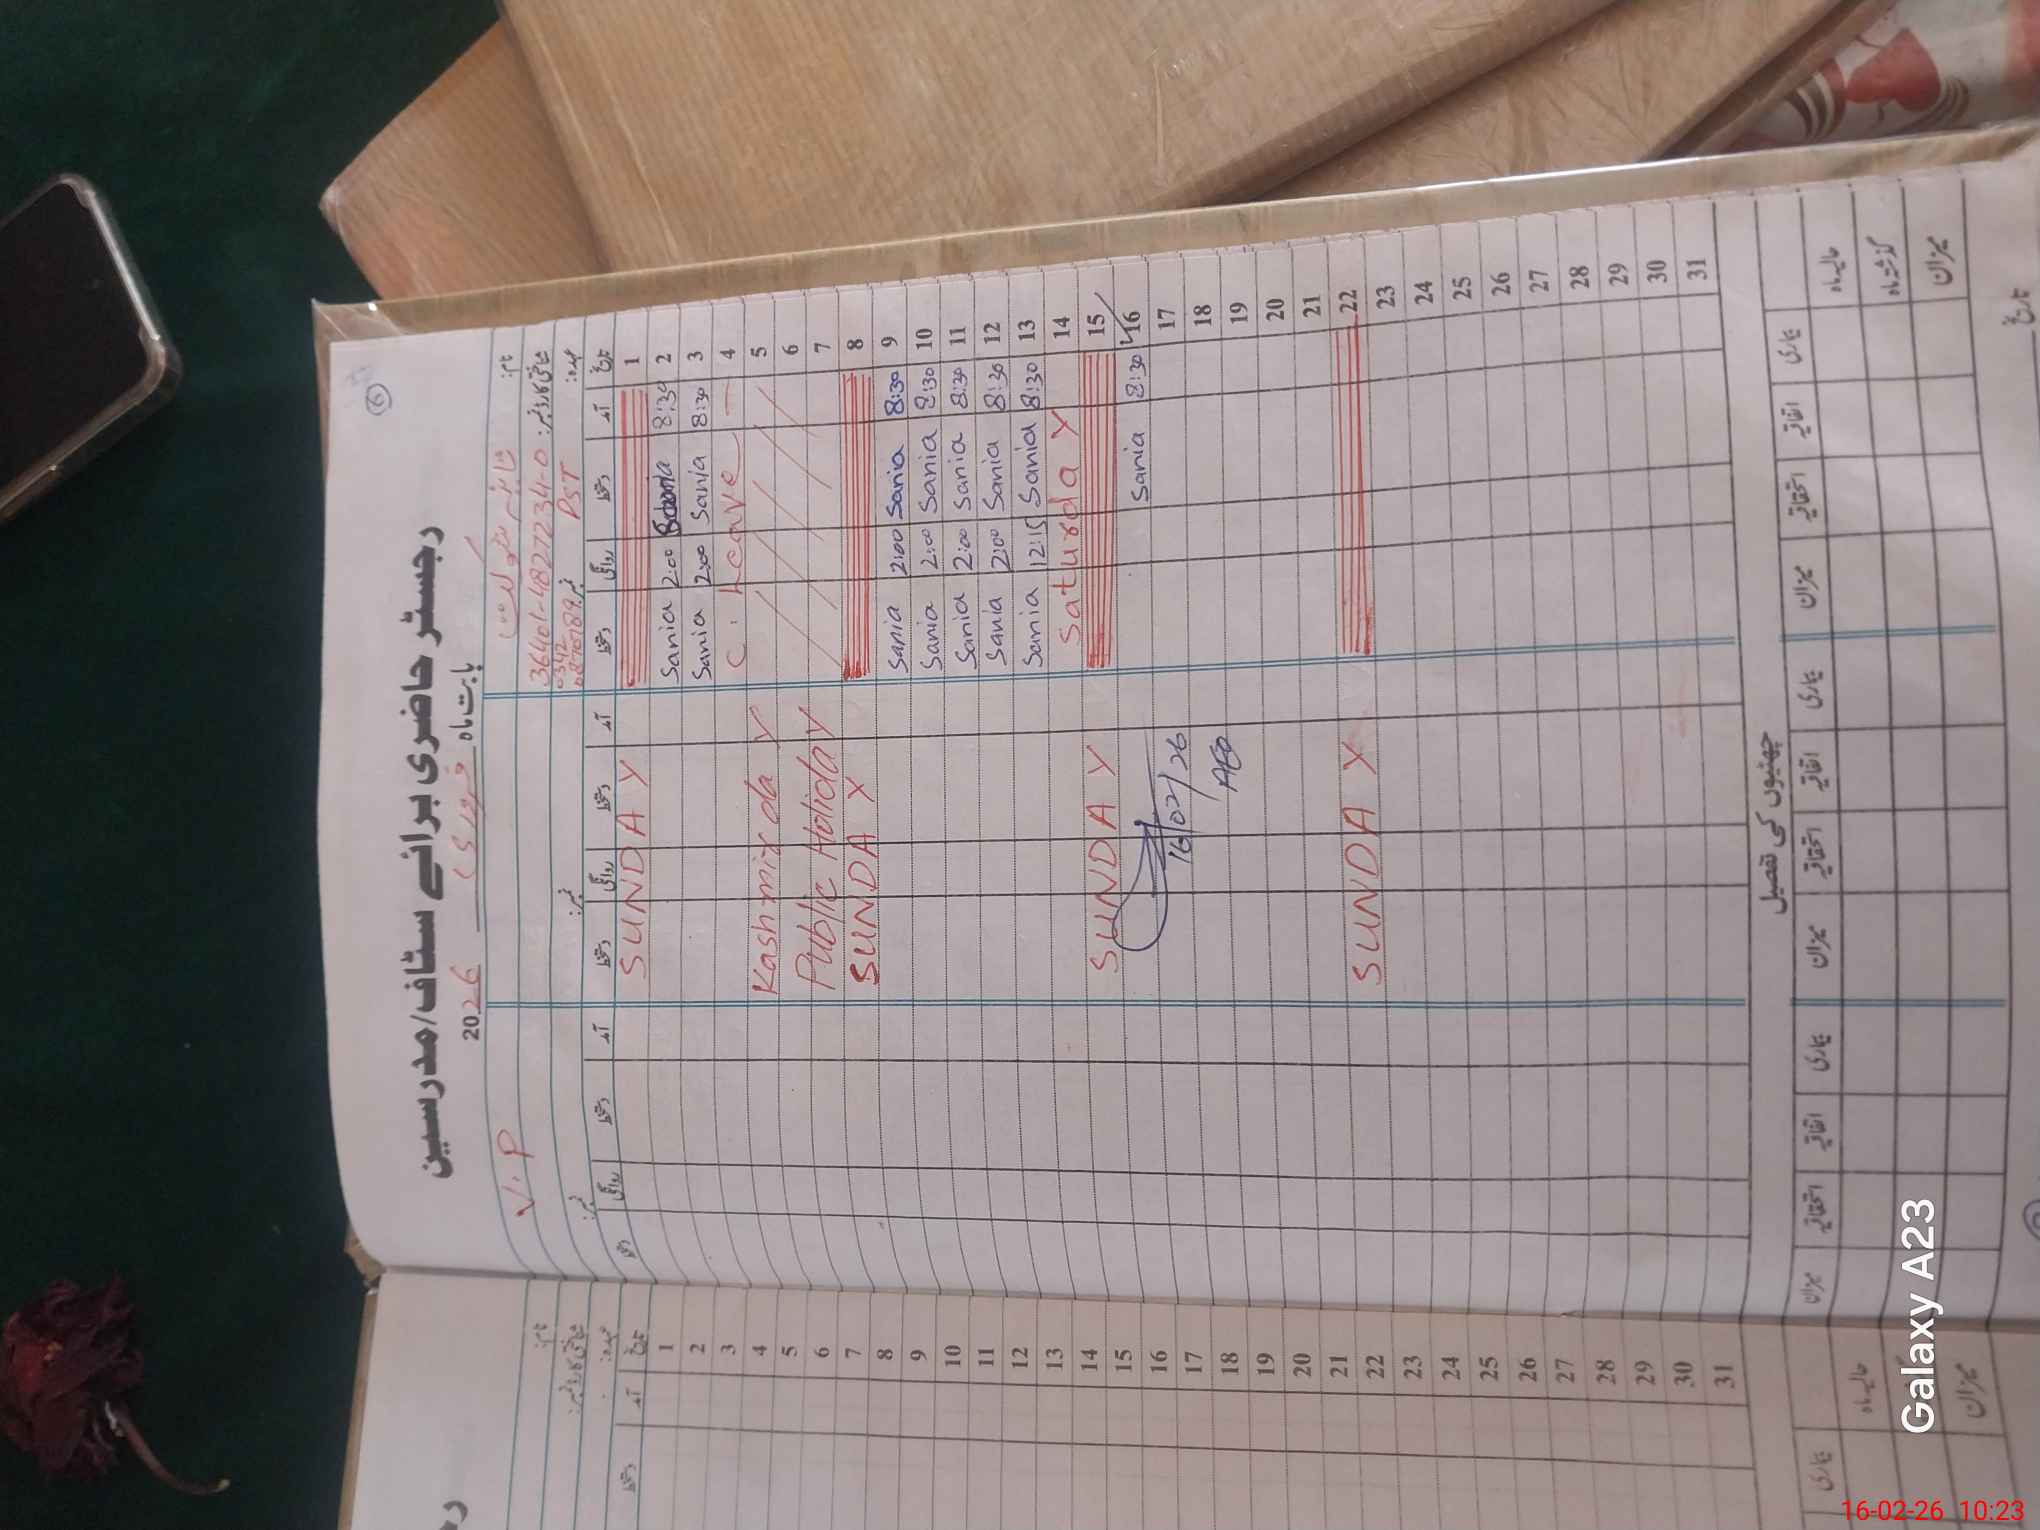 6
رجسٹر حاضری برائے سٹاف/مدرسین
بابت ماہ فروری 2026
نام:
شناختی کارڈ نمبر: 36401-4827234-0
عہدہ: PST
نمبر:
V.P
تاریخ آمد دستخط روانگی دستخط آمد دستخط روانگی دستخط آمد دستخط روانگی
1 SUNDAY
2 8:30 Sania 2:00 Sania
3 8:30 Sania 2:00 Sania
4 C. Leave
5 Kashmir day
6 Public Holiday
7
8 SUNDAY
9 8:30 Sania 2:00 Sania
10 8:30 Sania 2:00 Sania
11 8:30 Sania 2:00 Sania
12 8:30 Sania 2:00 Sania
13 8:30 Sania 12:15 Sania
14 Saturday
15 SUNDAY
16 8:30 Sania
17 16/02/26
18 AEO
19
20
21
22 SUNDAY
23
24
25
26
27
28
29
30
31
چھٹیوں کی تفصیل
جاری اتفاقیہ استحقاقیہ میزان جاری اتفاقیہ استحقاقیہ میزان جاری اتفاقیہ استحقاقیہ میزان
حالیہ ماہ
گزشتہ ماہ
میزان
تاریخ
نام:
شناختی کارڈ نمبر:
عہدہ:
تاریخ آمد دستخط
1
2
3
4
5
6
7
8
9
10
11
12
13
14
15
16
17
18
19
20
21
22
23
24
25
26
27
28
29
30
31
جاری
حالیہ ماہ
میزان
Galaxy A23
16-02-26 10:23